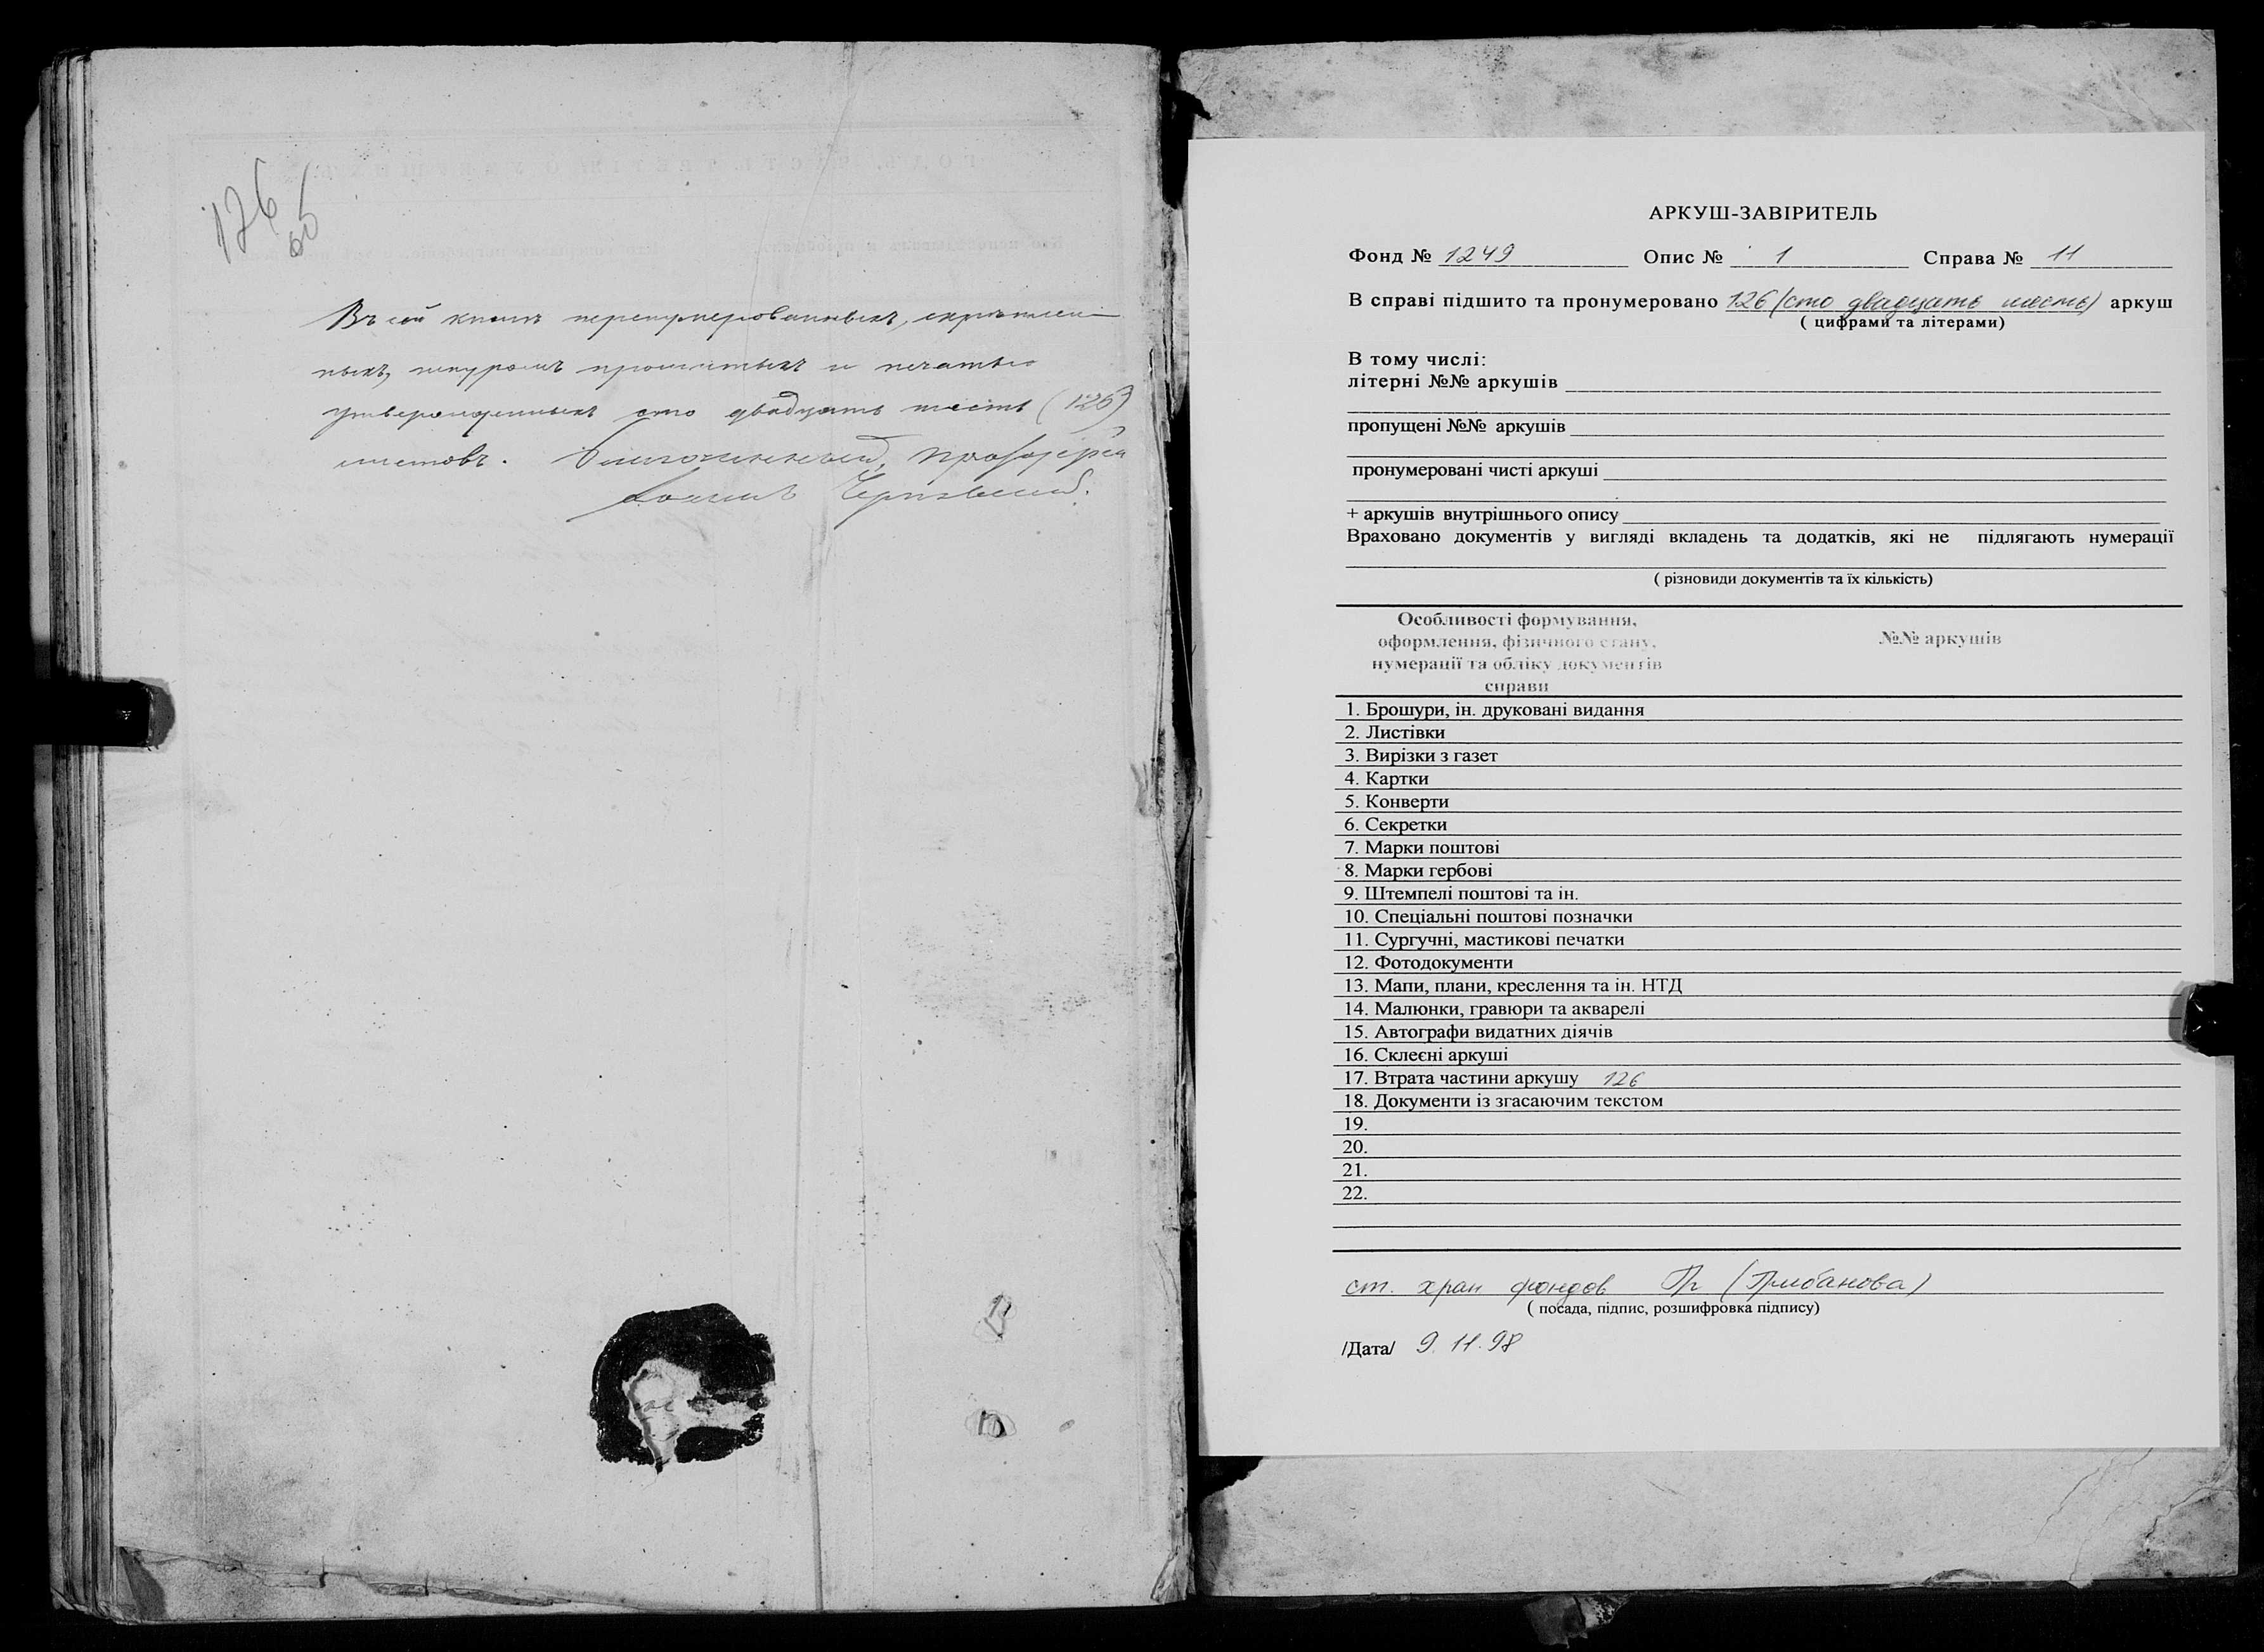 126
Въ сей книгѣ перенумерованныхъ, скрѣплен-
ныхъ, шнуромъ прошитыхъ и печатью
утвержденныхъ сто двадцать шесть (126)
листовъ. Благочинный, Протоіерей
Іоаннъ
АРКУШ-ЗАВІРИТЕЛЬ
Фонд № 1249 Опис № 1 Справа № 11
В справі підшито та пронумеровано 126 (сто двадцать шесть) аркуш
( цифрами та літерами)
В тому числі:
літерні №№ аркушів
пропущені №№ аркушів
пронумеровані чисті аркуші
+ аркушів внутрішнього опису
Враховано документів у вигляді вкладень та додатків, які не підлягають нумерації
( різновиди документів та їх кількість)
Особливості формування,
оформлення, фізичного стану, №№ аркушів
нумерації та обліку документів
справи
1. Брошури, ін. друковані видання
2. Листівки
3. Вирізки з газет
4. Картки
5. Конверти
6. Секретки
7. Марки поштові
8. Марки гербові
9. Штемпелі поштові та ін.
10. Спеціальні поштові позначки
11. Сургучні, мастикові печатки
12. Фотодокументи
13. Мапи, плани, креслення та ін. НТД
14. Малюнки, гравюри та акварелі
15. Автографи видатних діячів
16. Склеєні аркуші
17. Втрата частини аркушу 126
18. Документи із згасаючим текстом
19.
20.
21.
22.
ст. хран фондов
( посада, підпис, розшифровка підпису)
/Дата/ 9.11.98